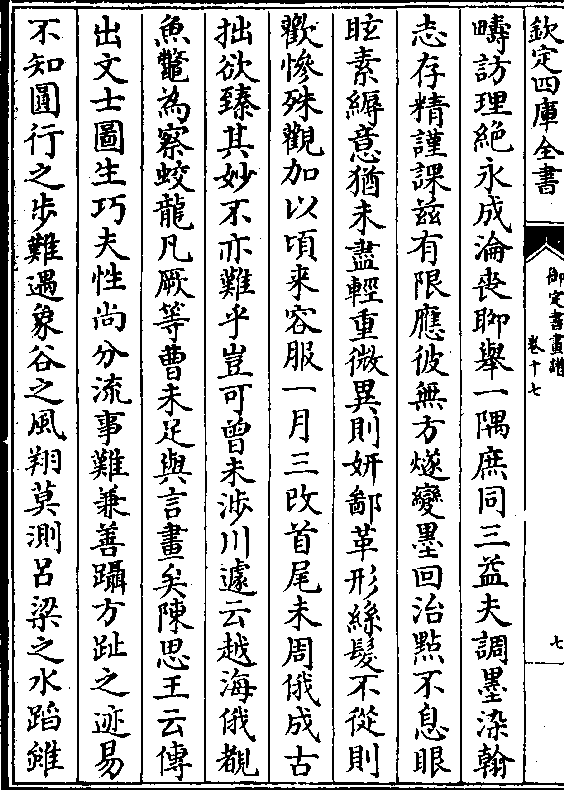 欽定四庫全書
御定書畫譜
卷十七
七
疇訪理絶永成淪喪聊舉一隅庶同三益夫調墨染翰
志存精謹課兹有限應彼無方燧變墨回治點不息眼
眩素縟意猶未盡輕重微異則妍鄙革形絲髮不從則
歡慘殊觀加以頃來容服一月三改首尾未周俄成古
拙欲臻其妙不亦難乎豈可曾未涉川遽云越海俄覩
魚鼈為察蛟龍凡厥等曹未足與言畫矣陳思王云傳
出文士圖生巧夫性尚分流事難兼善躡方趾之迹易
不知圓行之步難遇象谷之風翔莫測吕梁之水蹈雖